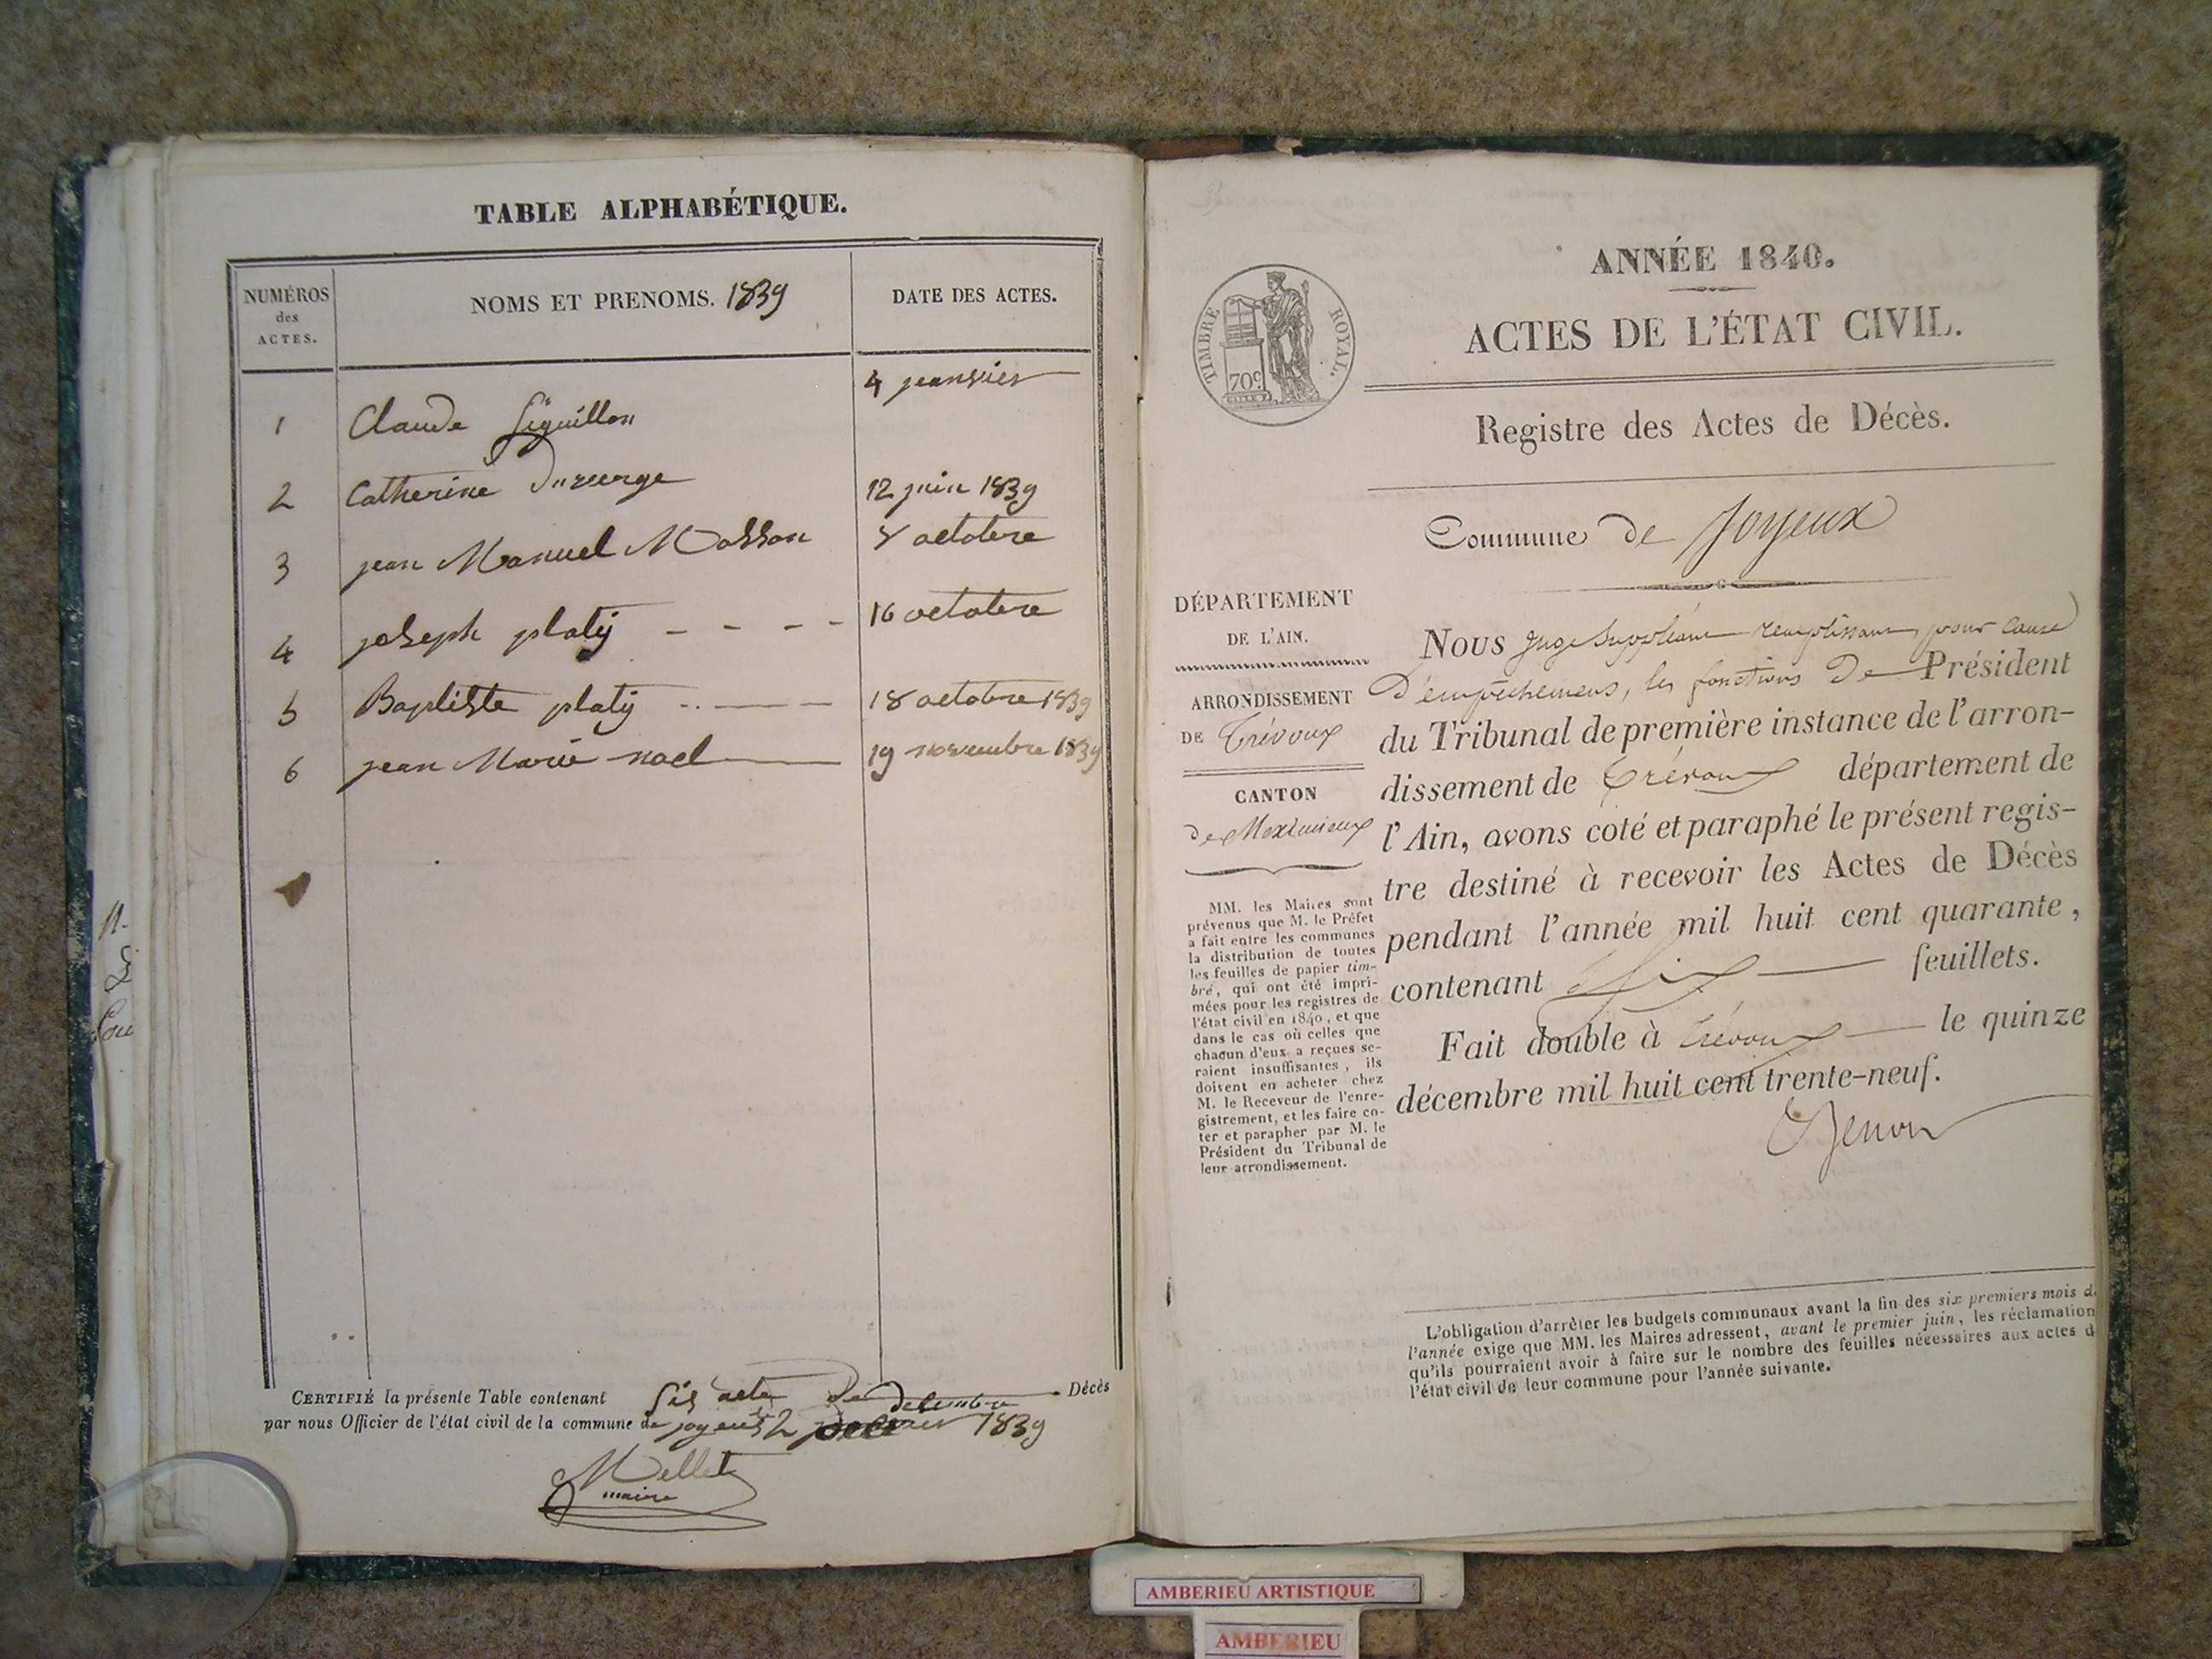 TABLE ALPHABÉTIQUE.
NUMÉROS
des
ACTES.
NOMS ET PRENOMS. 1839
DATE DES ACTES.
1 Claude 4 jeanvier
2 Catherine 12 juin 1839
3 jean Manuel Masson 8 octobre
4 joseph platij - - - - 16 octobre
5 Baptiste platij 18 octobre 1839
6 jean Marie noel 19 novembre 1839
CERTIFIÉ la présente Table contenant Six acte De Décès
decembre
par nous Officier de l'état civil de la commune de joyeux 2 1839
Mellet
maire
TIMBRE ROYAL.
70c
ANNÉE 1840.
ACTES DE L'ÉTAT CIVIL.
Registre des Actes de Décès.
Commune de Joyeux
DÉPARTEMENT
DE L'AIN.
ARRONDISSEMENT
DE Trévoux
CANTON
de Meximieux
MM. les Maires sont
prévenus que M. le Préfet
a fait entre les communes
la distribution de toutes
les feuilles de papier tim-
bré, qui ont été impri-
mées pour les registres de
l'état civil en 1840, et que
dans le cas où celles que
chacun d'eux a reçues se-
raient insuffisantes, ils
doivent en acheter chez
M. le Receveur de l'enre-
gistrement, et les faire co-
ter et parapher par M. le
Président du Tribunal de
leur arrondissement.
Nous Juge Suppléant remplissant, pour cause
d'empêchemens, les fonctions De Président
du Tribunal de première instance de l'arron-
dissement de Trévoux département de
l'Ain, avons coté et paraphé le présent regis-
tre destiné à recevoir les Actes de Décès
pendant l'année mil huit cent quarante,
contenant Six feuillets.
Fait double à Trévoux le quinze
décembre mil huit cent trente-neuf.
L'obligation d'arrêter les budgets communaux avant la fin des six premiers mois d
l'année exige que MM. les Maires adressent, avant le premier juin, les réclamation
qu'ils pourraient avoir à faire sur le nombre des feuilles nécessaires aux actes d
l'état civil de leur commune pour l'année suivante.
AMBERIEU ARTISTIQUE
AMBERIEU